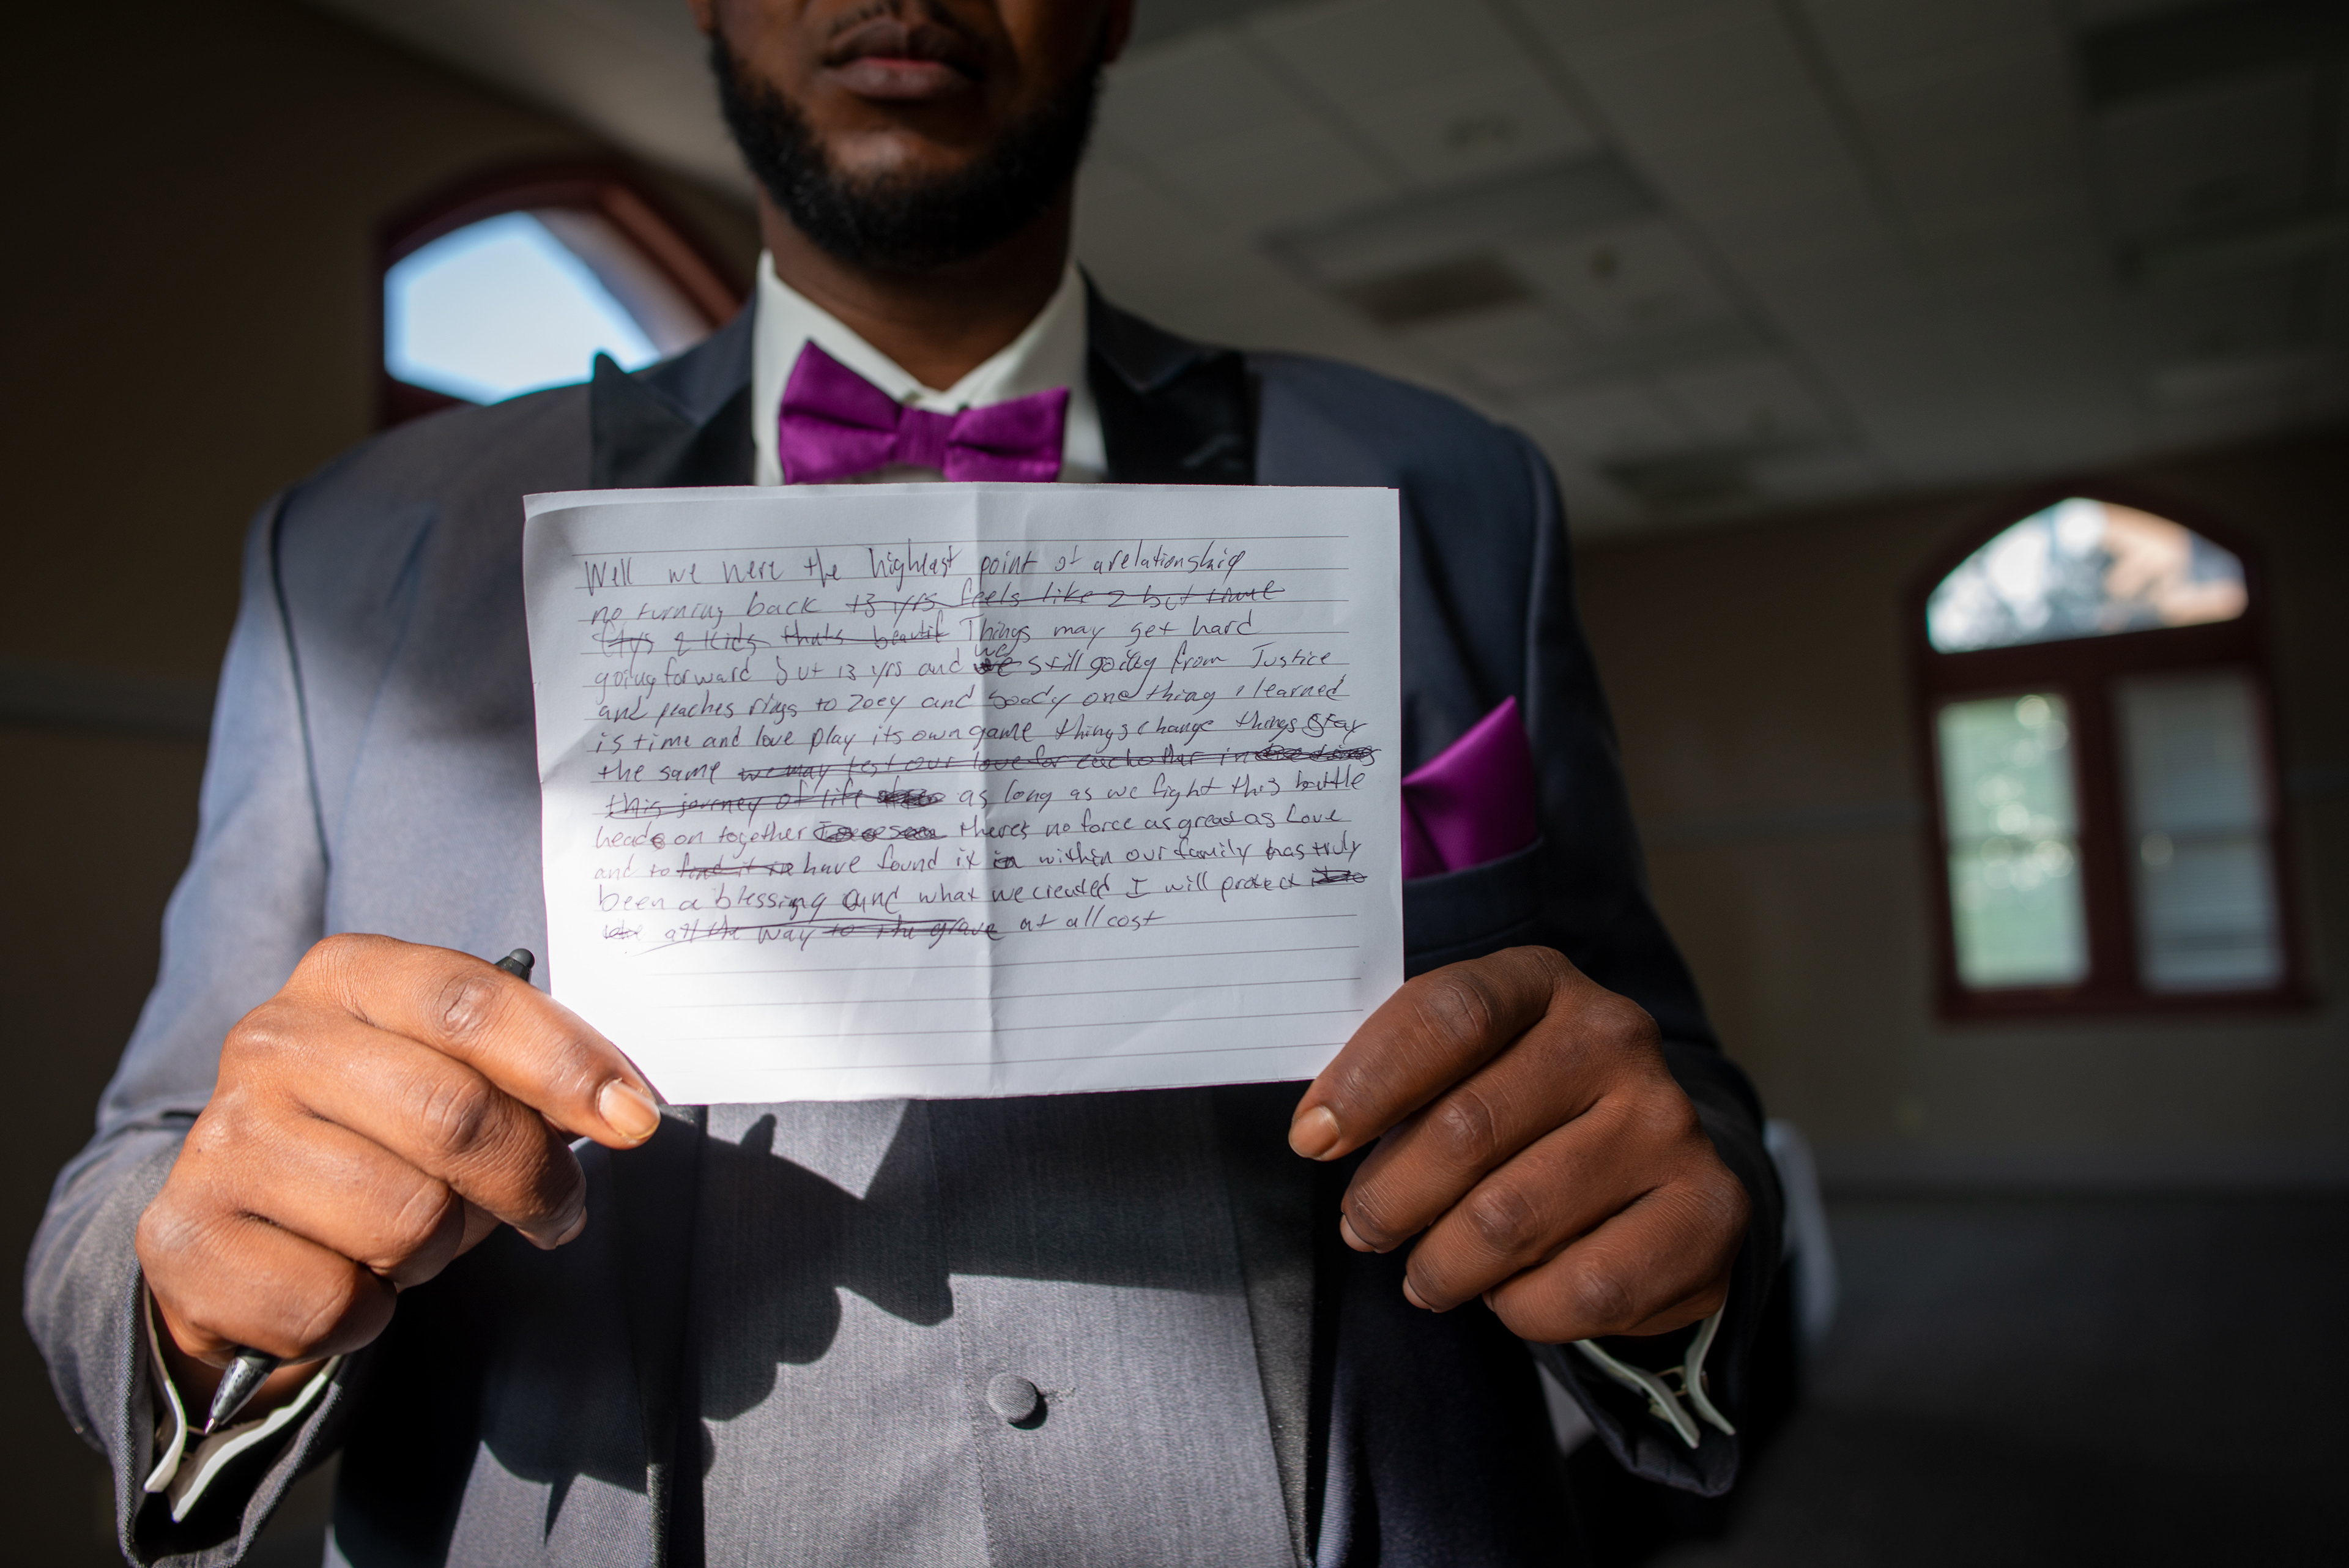 Well we here the highest point of a relationship
no turning back 13 yrs feels like 2 but time
2 kids thats beautif Things may get hard
going forward but 13 yrs and we still going from Justice
and peaches rings to Zoey and one thing I learned
is time and love play its own game things change things stay
the same we may test our love for eachother in
this jorney of life as long as we fight this battle
heads on together theres no force as great as Love
and to find it in have found it in within our family has truly
been a blessing and what we created I will protect
all the way to the grave at all cost